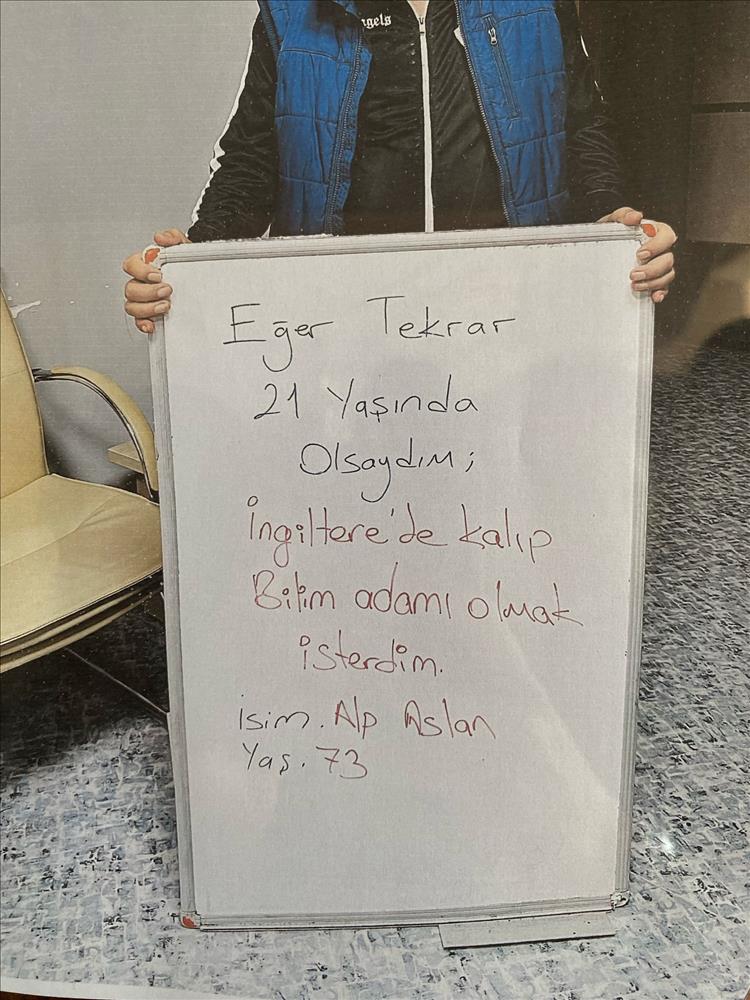 ngels
Eğer Tekrar
21 Yaşında
Olsaydım;
İngiltere'de kalıp
Bilim adamı olmak
isterdim.
isim. Alp Aslan
Yaş. 73